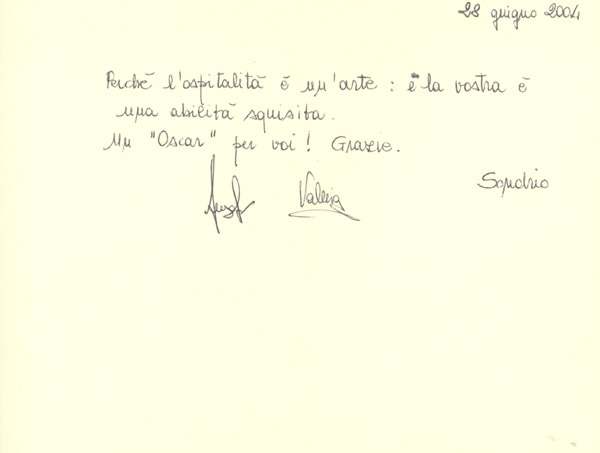 28 giugno 2004
Perché l'ospitalità è un'arte : e la vostra è
una abilità squisita.
Un "Oscar" per voi! Grazie.
Sondrio
Valeria